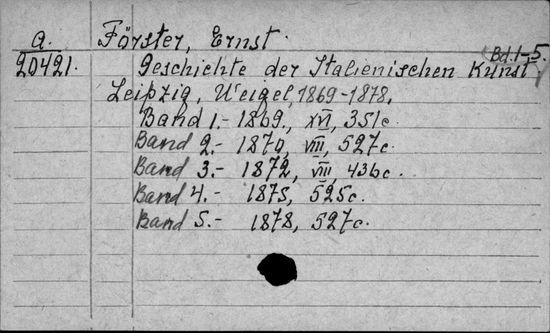 a. Förster, Ernst.
20421. Geschichte der Italienischen Kunst, Bd.1-5.
Leipzig, Weigel, 1869-1878.
Band 1.- 1869, XVI, 351c.
Band 2.- 1870, VIII, 527c.
Band 3.- 1872, VIII, 436c.
Band 4.- 1875, 525c.
Band 5.- 1878, 527c.